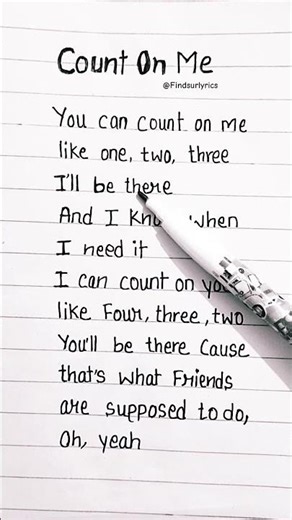 Count On Me
@Findsurlyrics
You can count on me
like one, two, three
I'll be there
And I when
I need it
I can count on
like Four, three, two
You'll be there Cause
that's what Friends
are supposed to do,
Oh, yeah